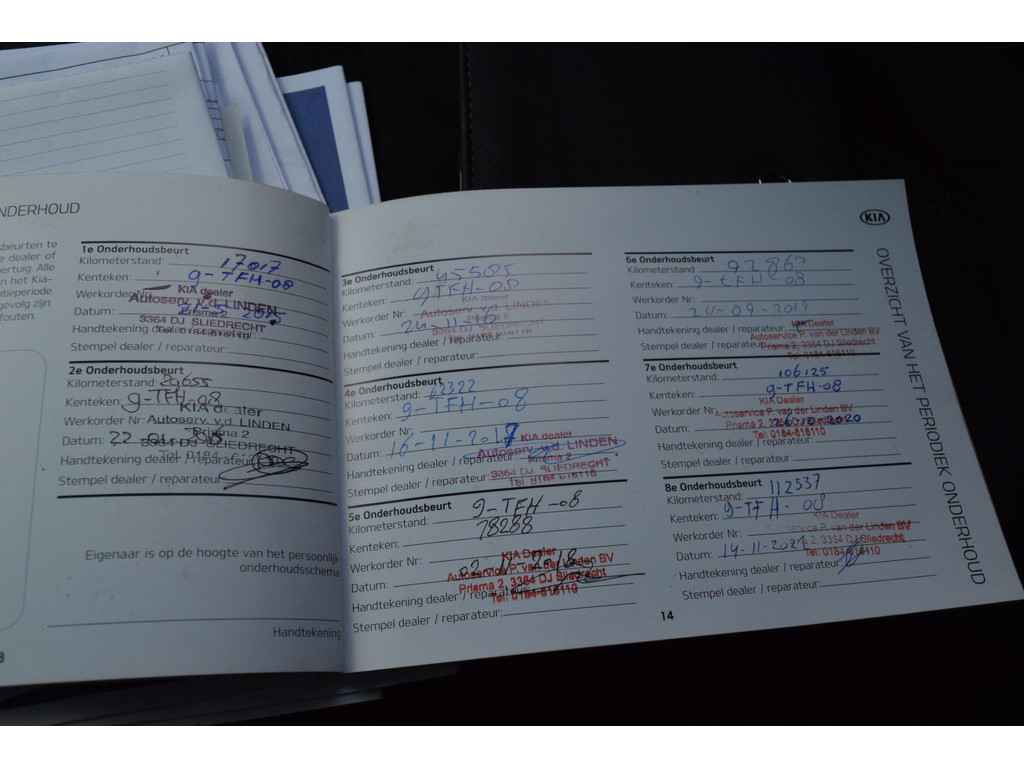 NDERHOUD
beurten te
e dealer of
ertug. Alle
n het Kia-
tieperiode
gevolg zijn
fouten.
1e Onderhoudsbeurt
Kilometerstand: 17017
Kenteken: 9-TFH-08
Werkorder Nr:
KIA dealer
Autoserv. v.d. LINDEN
Datum:
Prisma 2
3364 DJ SLIEDRECHT
Handtekening dealer / reparateur:
Stempel dealer / reparateur:
2e Onderhoudsbeurt
Kilometerstand: 29655
Kenteken: 9-TFH-08
KIA dealer
Werkorder Nr: Autoserv. v.d. LINDEN
Prisma 2
Datum: 22
3364 DJ SLIEDRECHT
Handtekening dealer / reparateur:
Tel 0184
Stempel dealer / reparateur:
Eigenaar is op de hoogte van het persoonlijk
onderhoudsschema
Handtekening
3e Onderhoudsbeurt
Kilometerstand: 45585
Kenteken: 9TFH-08
KIA dealer
Werkorder Nr: Autoserv. v.d. LINDEN
Datum: 24-11-2016
Handtekening dealer / reparateur:
Stempel dealer / reparateur:
4e Onderhoudsbeurt
Kilometerstand: 62322
Kenteken: 9-TFH-08
Werkorder Nr:
Datum: 16-11-2017
KIA dealer
Autoserv. v.d. LINDEN
Handtekening dealer / reparateur:
Prisma 2
3364 DJ SLIEDRECHT
Stempel dealer / reparateur:
Tel 0184-616110
5e Onderhoudsbeurt
9-TFH-08
Kilometerstand: 78288
Kenteken:
Werkorder Nr:
KIA Dealer
Datum: 02-11-2018
Autoservice P. van der Linden BV
Prisma 2, 3364 DJ Sliedrecht
Handtekening dealer / reparateur:
Tel: 0184-616110
Stempel dealer / reparateur:
KIA
6e Onderhoudsbeurt
Kilometerstand: 92867
Kenteken: 9-TFH-08
Werkorder Nr:
Datum: 24-09-2019
Handtekening dealer / reparateur:
KIA Dealer
Autoservice P. van der Linden BV
Stempel dealer / reparateur:
Prisma 2, 3364 DJ Sliedrecht
Tel: 0184-616110
7e Onderhoudsbeurt
Kilometerstand: 106125
Kenteken: 9-TFH-08
KIA Dealer
Werkorder Nr:
Autoservice P. van der Linden BV
Datum: 26-10-2020
Tel: 0184-616110
Handtekening dealer / reparateur:
Stempel dealer / reparateur:
8e Onderhoudsbeurt
Kilometerstand: 112537
Kenteken: 9-TFH-08
KIA Dealer
Werkorder Nr:
Autoservice P. van der Linden BV
Datum: 14-11-2021
2, 3364 DJ Sliedrecht
Tel: 0184-616110
Handtekening dealer / reparateur:
Stempel dealer / reparateur:
14
OVERZICHT VAN HET PERIODIEK ONDERHOUD